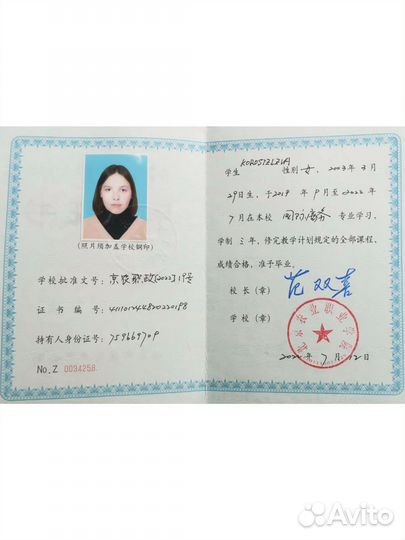 (照片须加盖学校钢印)
学校批准文号：京农职政[2022]19号
证书编号：411101444820220198
持有人身份证号：759669709
No.Z 0034258
KOROSTELEVA
学生 性别 女，2003年3月
29日生，于2019年9月至2022年
7月在本校 国际商务 专业学习，
学制三年，修完教学计划规定的全部课程，
成绩合格，准予毕业。
校长（章） 范双喜
学校（章）
北京农业职业学院
2022年7月12日
Avito